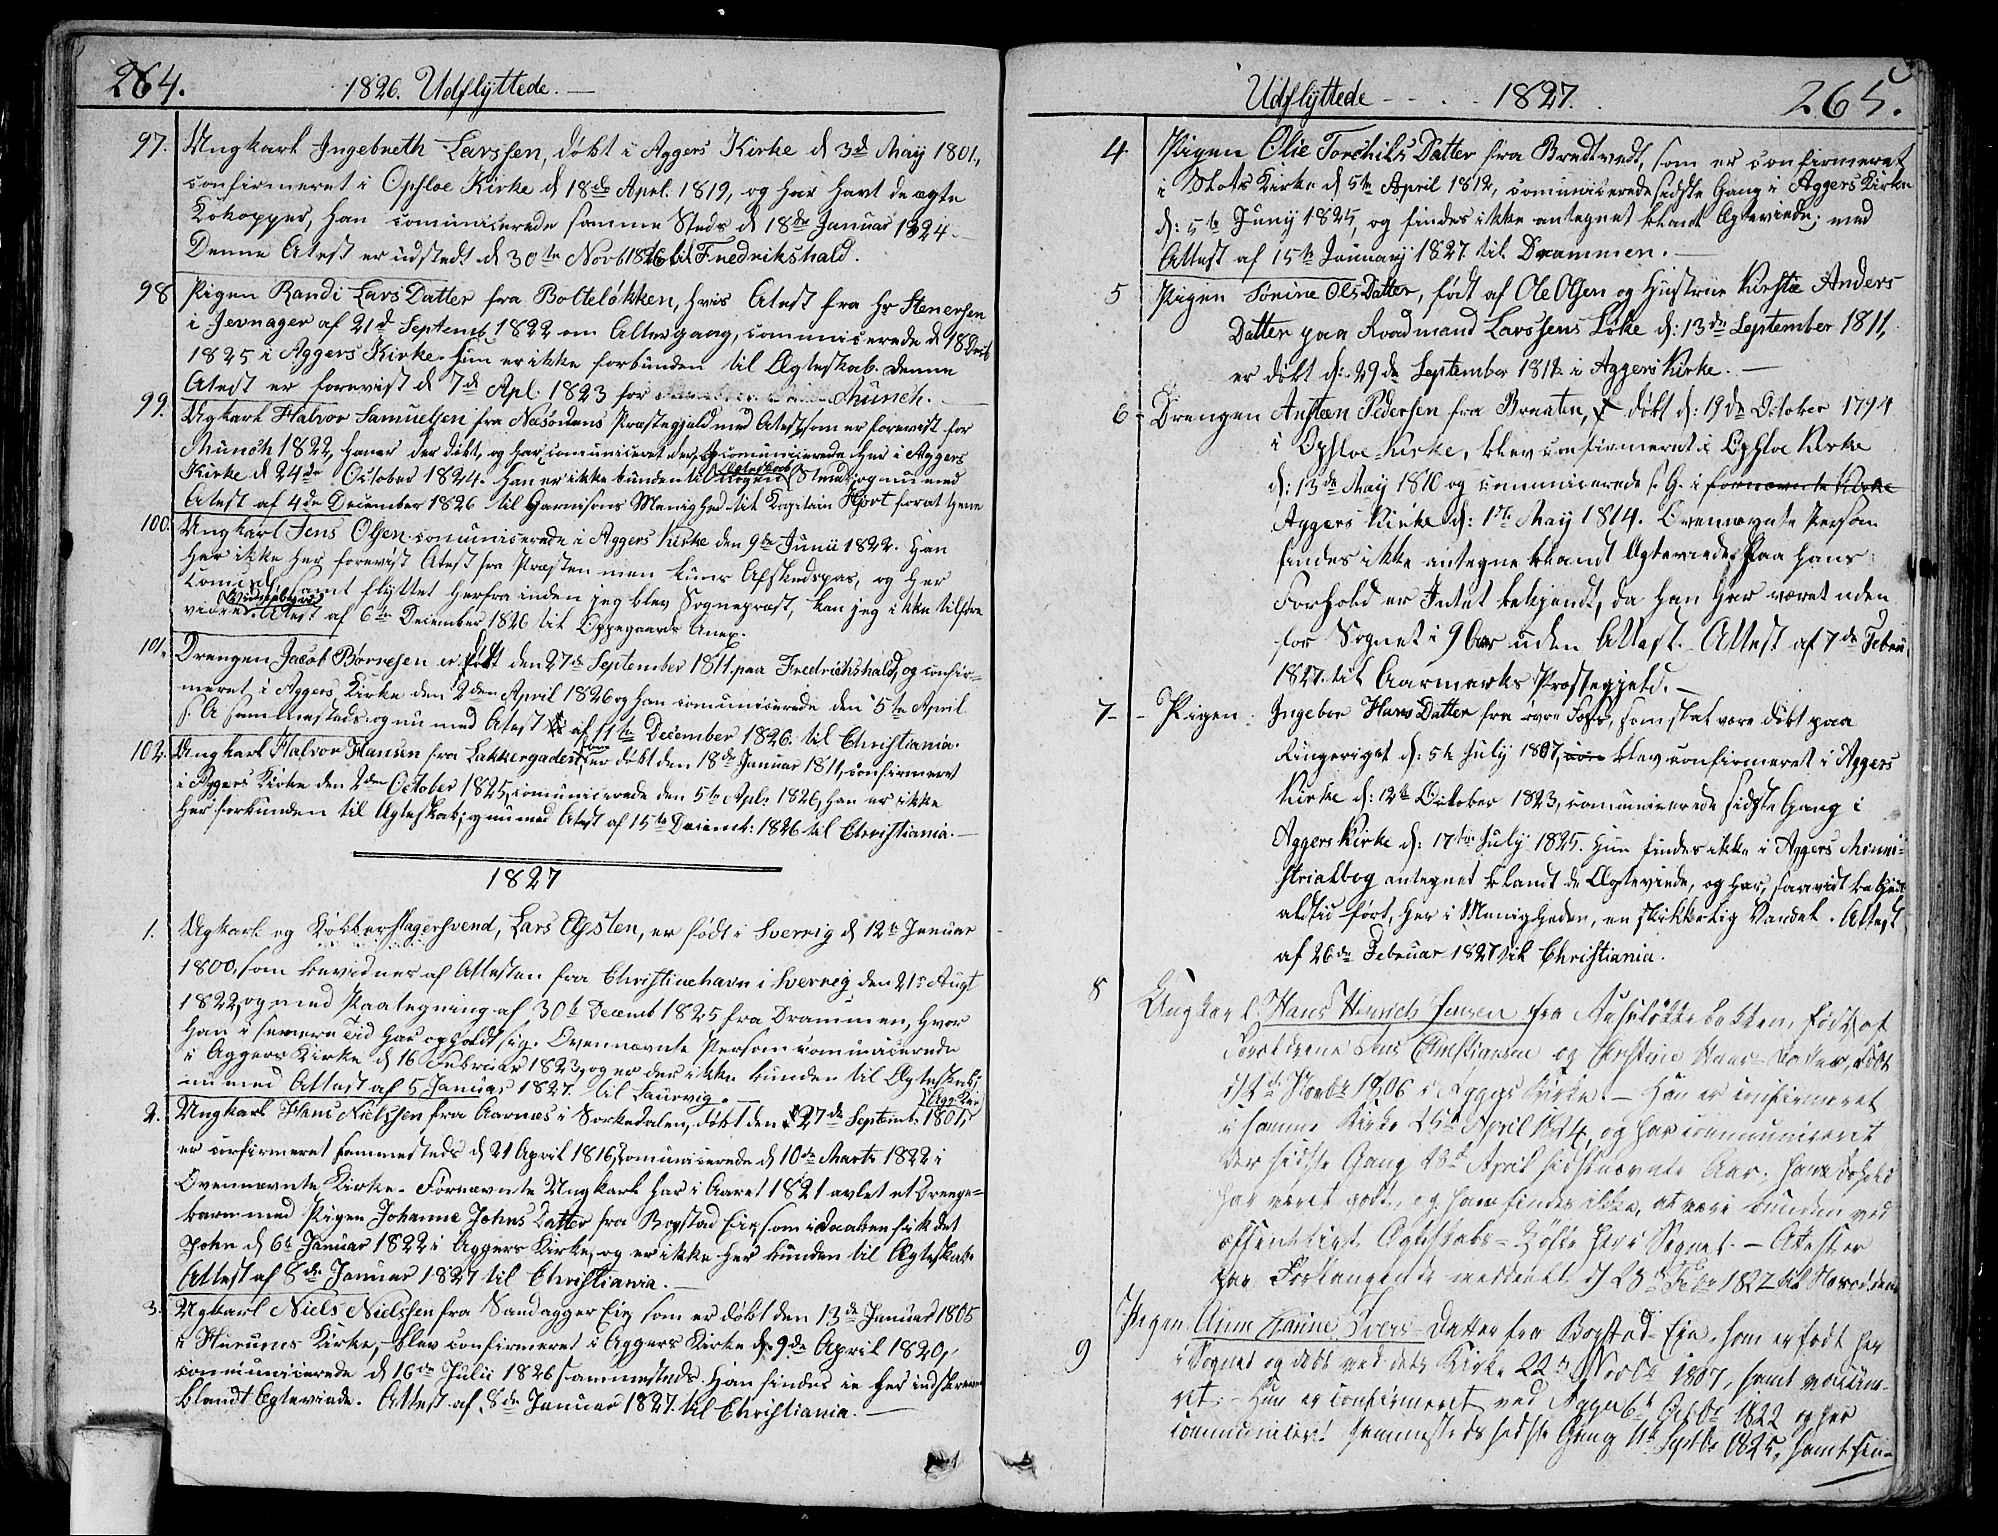 264.
1826. Udflyttede. —
97. Ungkarl Ingebreth Larssen, døbt i Aggers Kirke d 3d May 1801,
confirmeret i Opsloe Kirke d 18de Aprl. 1819, og har havt de ægte
Kokopper, han comunicerede samme Steds d 18de Januar 1824. —
Denne Atest er udstedt d 30te Novb 1826 til Fredrikshald.
98 Pigen Randi Lars Datter fra Bolteløkken, hvis Atest fra Hr Stenersen
i Jevnager af 21d Septemb 1822 om Altergang, communicerede d 18
1825 i Aggers Kirke. Hun er ikke forbunden til Ægteskab. Denne
Atest er forevist d 7de Apl. 1823 for Munch. —
99. Ugkarl Halvor Samuelsen fra Næsoddens Præstegjæld med Atest, som er forevist for
Munch 1822, han er der døbt, og har comuniceret der, og comunicerede her i Aggers
Kirke d 24de October 1824. Han er ikke bunden til nogen Ægteskab Steds, og nu med
Atest af 4de December 1826 til Garnisons Menighed til Kapitain Hjort for at tjene
100. Ungkarl Jens Olsen comunicerede i Aggers Kirke den 9de Junii 1822. Han
har ikke her forevist Atest fra Præsten men kuns Afskedspas, og her
comed, samt flyttet herfra inden jeg blev Sognepræst, kan jeg i ikke tilføre
videre Atest af 6te December 1826 til Oppegaards Anex.
101. Drengen Jacob Børresen er født den 27de September 1811 paa Fredrichshald, og confir-
meret i Aggers Kirke den 2den April 1826 og han comunicerede den 5te April
s. A sammesteds og nu med Atest af 11te December 1826. til Christiania.
102. Ungkarl Halvor Hansen fra Lakkergaden, som er døbt den 18de Januar 1811, confirmeret
i Aggers Kirke den 2den October 1825, comunicerede den 5te Apl. 1826, han er ikke
her forbunden til Ægteskab; og nu med Atest af 15te Decemb: 1826 til Christiania. —
1827
1. Ugkarl og Kobberslagersvend, Lars Øysten, er født i Sverrig d 12te Januar
1800, som bevidnes af Attesten fra Christinehavn i Sverrig den 21de Augt
1822, og med Paategning af 30te Decemb 1825 fra Drammen, hvor
han i senere Tid har opholdt sig. Ovennævnte Person comunicerede
i Aggers Kirke d 16 Februar 1823, og er der ikke bunden til Ægteskab;
nu med Attest af 5 Januar 1827. til Laurvig. —
2. Ungkarl Hans Nielssen fra Aarnæs i Sørkedalen, døbt den 27de Septemb. 1801, i Agg. Kir
er confirmeret sammesteds d 21 April 1816, comunicerede d 10de Marts 1822 i
Ovennævnte Kirke. Fornævnte Ungkarl har i Aaret 1821 avlet et Drenge-
barn med Pigen Johanne Johns Datter fra Bogstad Eie, som i Daaben fik det
John d 6te Januar 1822 i Aggers Kirke, og er ikke her bunden til Ægteskab
Attest af 8de Januar 1827 til Christiania. —
3. Ugkarl Niels Nielssen fra Sandagger Eie, som er døbt den 13de Januar 1805
i Hurums Kirke, blev confirmeret i Aggers Kirke d. 9de April 1820,
comunicerede d 16de Julii 1826 sammesteds. Han findes ei her indskreven
blandt Ægteviede. Attest af 8de Januar 1827. til Christiania. —
Udflyttede - - . . - 1827.
265.
4 Pigen Olie Torchils Datter fra Bredtvedt, som er confirmeret
i Slots Kirke d 5te April 1812, comunicerede sidste Gang i Aggers Kirke
d: 5te Juny 1825, og findes ikke antegnet blandt Ægteviede; med
Attest af 15te January 1827 til Drammen. —
5 Pigen Sørine Ols Datter, født af Ole Olsen og Hustrue Kirstie Anders
Datter paa Raadmand Larssens Løke d: 13de September 1811,
er døbt d: 29de September 1811 i Aggers Kirke. —
6 - Drengen Ansteen Pedersen fra Braaten, døbt d: 19de October 1794
i Opsloe Kirke, blev confirmeret i Opsloe Kirke
d: 13de May 1810 og communicerede s. G. i fornævnte Kirke
Aggers Kirke d: 1te May 1814. Ovennævnte Person
findes ikke antegnet blandt Ægteviede. Paa hans
Forhold er Intet bekjendt, da han har været uden
for Sognet i 9 Aar uden Attest. Attest af 7de Febru
1827. til Aarmarks Præstegjeld. —
7 - - Pigen. Ingebor Hans Datter fra øvre Foss, som skal være døbt paa
Ringeriget d: 5te July 1807, blev confirmeret i Aggers
Kirke d: 12te October 1823, comunicerede sidste Gang i
Aggers Kirke d: 17de July 1825. Hun findes ikke i Aggers Minni-
strialbog antegnet blandt de Ægteviede, og har, saavidt bekjendt
altid ført, her i Menigheden, en skikkelig Vandel. Attest
af 26de Februar 1827 til Christiania.
8 Ungkarl. Hans Hinrich Jensen fra Løkkebakken, født af
Forældrene Jens Christiansen og Christine Hans Datter, døbt
d 2de Novbr 1806 i Aggers Kirke. — Han er confirmeret
i samme Kirke 25de April 1824, og har communiceret
der sidste Gang 18de April sidstnævnte Aar. Hans Forhold
har været godt, og han findes ikke, at være bunden ved
offentligt Ægteskabs-Løfte her i Sognet. — Attest er
paa Forlangende meddeelt d 23de Febr 1827 til
9 Pigen Anne Ivers Datter fra Bogstad-Eie, som er født her
i Sognet og døbt ved dets Kirke 22de Novbr 1807, samt vaccine-
ret. — Hun er confirmeret ved Agger 6te Octbr 1822 og her
communiceret sammesteds sidste Gang 11te Septbr 1825, samt fin-